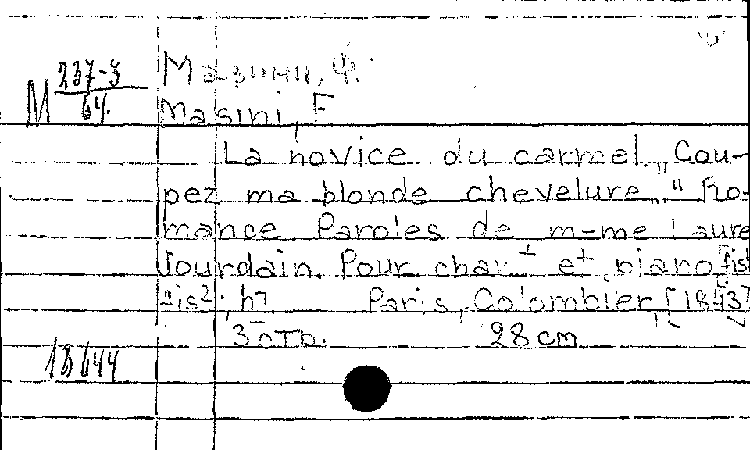 М 237-3/64
Мазини, Ф.
Masini, F
La novice du carmel „Cou-
pez ma blonde chevelure." Ro-
mance Paroles de m-me Laure
Jourdain. Pour chant et piano [fis
Paris, Colombier, [1843]
3 отд. 28 cm
18644